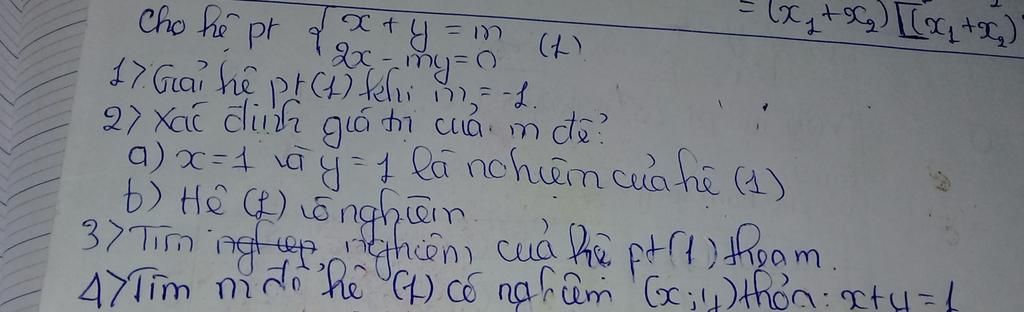 = (x₁+x₂)[(x₁+x₂)
Cho hệ pt { x + y = m
2x - my = 0 (1)
1> Giải hệ pt (1) khi m = -1.
2> Xác định giá trị của m để:
a) x = 1 và y = 1 là nghiệm của hệ (1)
b) Hệ (1) vô nghiệm.
3> Tìm nghiệm của hệ pt (1) theo m.
4> Tìm m để hệ (1) có nghiệm (x; y) thỏa: x+y = 1